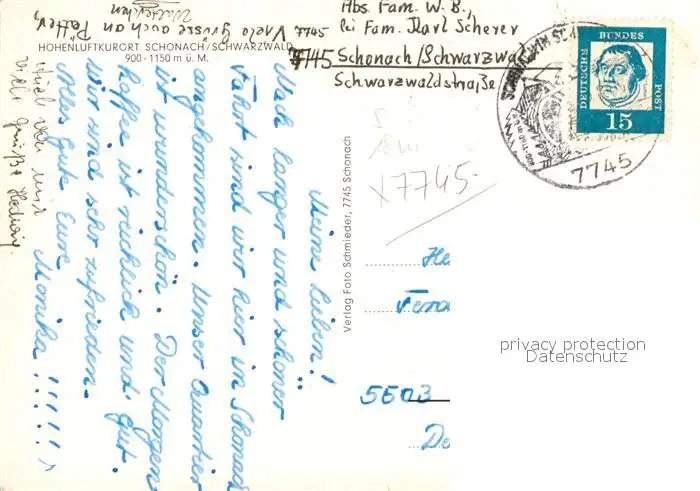 Abs. Fam. W. B.,
bei Fam. Karl Scherer
7745 Schonach/Schwarzwa
Schwarzwaldstraße
HÖHENLUFTKURORT SCHONACH/SCHWARZWALD
900 - 1150 m ü. M.
Meine Lieben!
Nach langer und schöner
Fahrt sind wir hier in Schonach
angekommen. Unser Quartier
ist wunderschön. Der Morgen
kaffee ist reichlich und gut.
Wir sind sehr zufrieden.
Alles Gute Eure
Monika !!!!!
Auch von mir
viele Grüße Hedwig.
Viele Grüsse auch an Petter,
7745
Verlag Foto Schmieder, 7745 Schonach
7745
He
5603
De
DEUTSCHE BUNDES POST
15
7745
privacy protection
Datenschutz